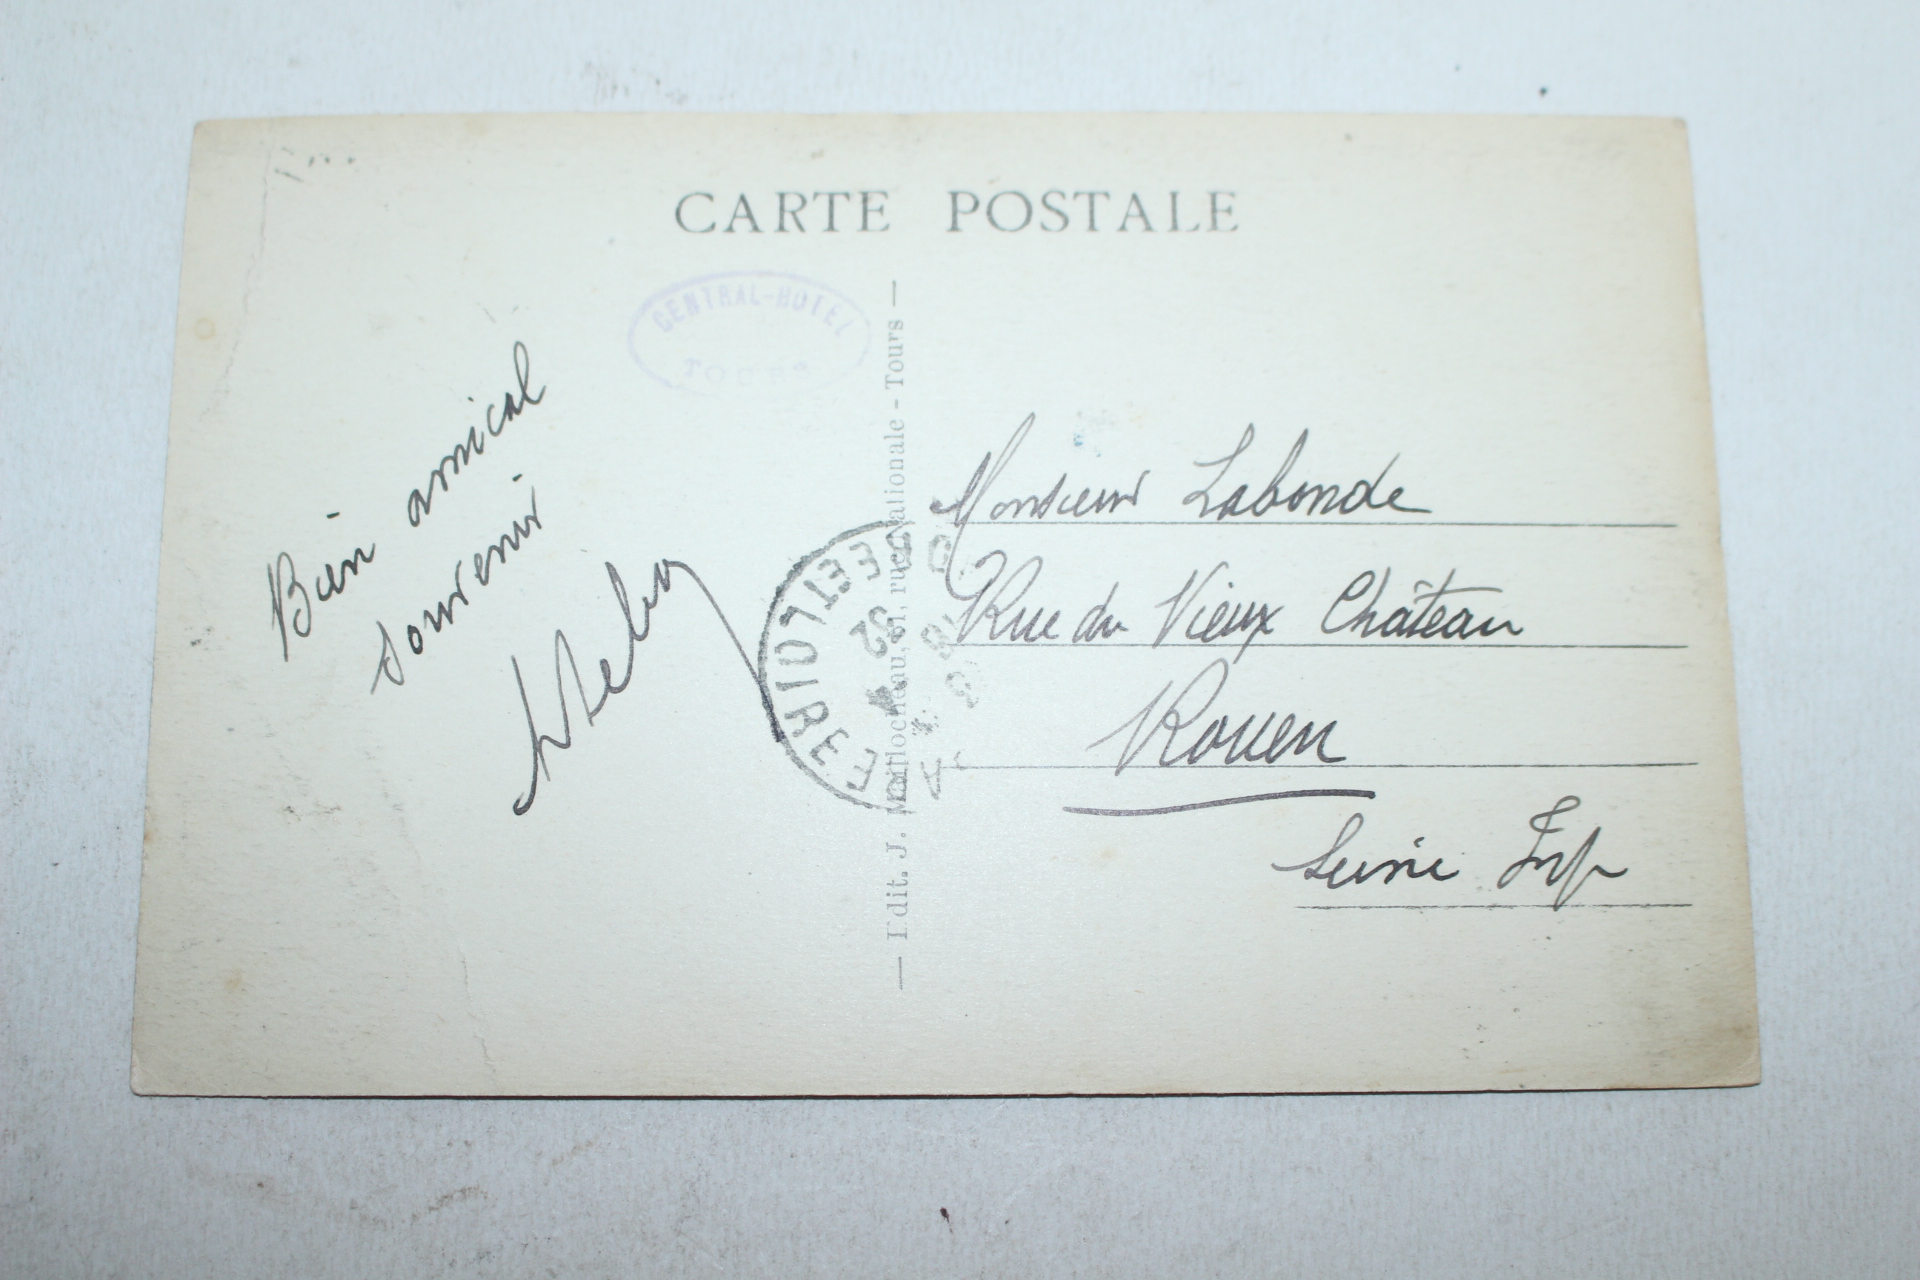 CARTE POSTALE
CENTRAL-HOTEL
TOURS
Bien amical
souvenir
Edit. J. rue Nationale - Tours
INDRE ET LOIRE
32
Monsieur Labonde
Rue du Vieux Château
Rouen
Seine Inf